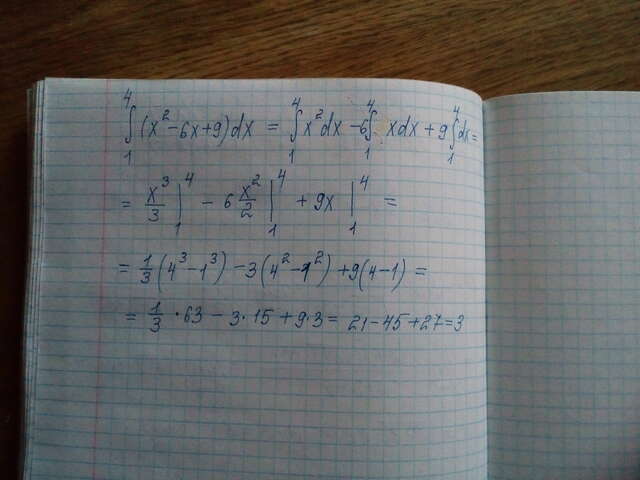 ∫₁⁴ (x² - 6x + 9) dx = ∫₁⁴ x² dx - 6 ∫₁⁴ x dx + 9 ∫₁⁴ dx =
= x³/3 |₁⁴ - 6 x²/2 |₁⁴ + 9x |₁⁴ =
= 1/3 (4³ - 1³) - 3(4² - 1²) + 9(4 - 1) =
= 1/3 · 63 - 3 · 15 + 9 · 3 = 21 - 45 + 27 = 3